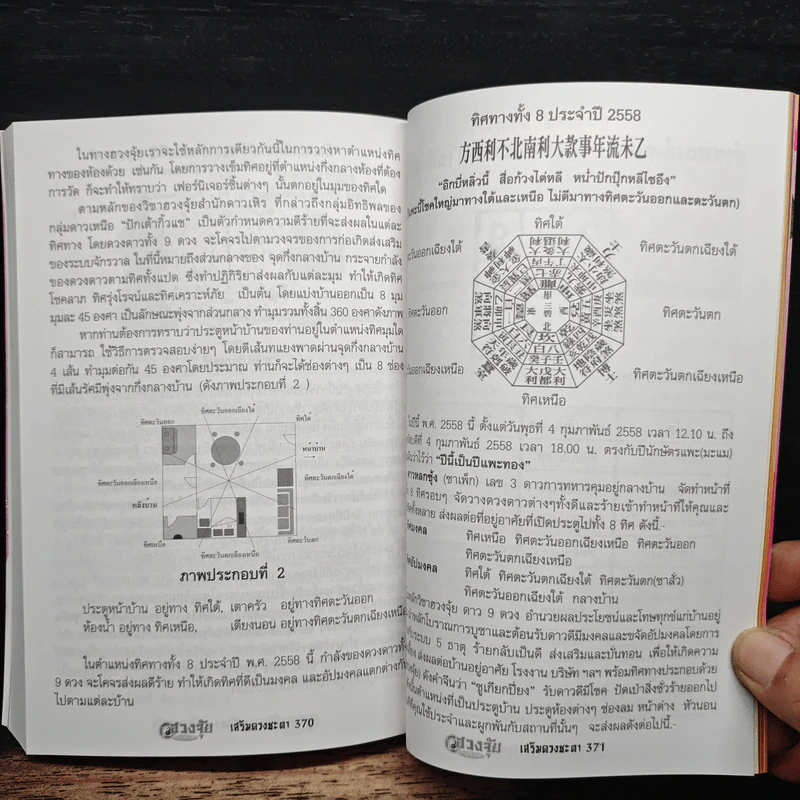 ในทางฮวงจุ้ยเราจะใช้หลักการเดียวกันนี้ในการวางหาตำแหน่งทิศ
ทางของห้องด้วย เช่นกัน โดยการวางเข็มทิศอยู่ที่ตำแหน่งกึ่งกลางห้องที่ต้อง
การวัด ก็จะทำให้ทราบว่า เฟอร์นิเจอร์ชิ้นต่างๆ นั้นตกอยู่ในมุมของทิศใด
ตามหลักของวิชาฮวงจุ้ยสำนักดาวเหิร ที่กล่าวถึงกลุ่มอิทธิพลของ
กลุ่มดาวเหนือ "ปักเต้ากิ้วแช" เป็นตัวกำหนดความดีร้ายที่จะส่งผลในแต่ละ
ทิศทาง โดยดวงดาวทั้ง 9 ดวง จะโคจรไปตามวงจรของการก่อเกิดส่งเสริม
ของระบบจักรวาล ในที่นี้หมายถึงส่วนกลางของ จุดกึ่งกลางบ้าน กระจายกำลัง
ของดวงดาวตามทิศทั้งแปด ซึ่งทำปฏิกิริยาส่งผลกับแต่ละมุม ทำให้เกิดทิศ
โชคลาภ ทิศรุ่งโรจน์และทิศเคราะห์ภัย เป็นต้น โดยแบ่งบ้านออกเป็น 8 มุม
มุมละ 45 องศา เป็นลักษณะพุ่งจากส่วนกลาง ทำมุมรวมทั้งสิ้น 360 องศาดังภาพ
หากท่านต้องการทราบว่าประตูหน้าบ้านของท่านอยู่ในตำแหน่งทิศมุมใด
ก็สามารถ ใช้วิธีการตรวจสอบง่ายๆ โดยตีเส้นทแยงพาดผ่านจุดกึ่งกลางบ้าน
4 เส้น ทำมุมต่อกัน 45 องศาโดยประมาณ ท่านก็จะได้ช่องต่างๆ เป็น 8 ช่อง
ที่มีเส้นรัศมีพุ่งจากกึ่งกลางบ้าน (ดังภาพประกอบที่ 2 )
ทิศตะวันออก ทิศตะวันออกเฉียงใต้ ทิศใต้
หน้าบ้าน
ทิศตะวันออกเฉียงเหนือ ทิศตะวันตกเฉียงใต้
หลังบ้าน
ทิศเหนือ ทิศตะวันตกเฉียงเหนือ ทิศตะวันตก
ภาพประกอบที่ 2
ประตูหน้าบ้าน อยู่ทาง ทิศใต้, เตาครัว อยู่ทางทิศตะวันออก
ห้องน้ำ อยู่ทาง ทิศเหนือ, เตียงนอน อยู่ทางทิศตะวันตกเฉียงเหนือ
ในตำแหน่งทิศทางทั้ง 8 ประจำปี พ.ศ. 2558 นี้ กำลังของดวงดาวทั้ง
9 ดวง จะโคจรส่งผลดีร้าย ทำให้เกิดทิศที่ดีเป็นมงคล และอัปมงคลแตกต่างกัน
ไปตามแต่ละบ้าน
ฮวงจุ้ย เสริมดวงชะตา 370
ทิศทางทั้ง 8 ประจำปี 2558
方西利不北南利大款事年流未乙
"อิกบี่หลิ่วนี้ สื่อก้วงไต่หลี หน่ำปักปุ๊กหลีไซอึง"
นี้โชคใหญ่มาทางใต้และเหนือ ไม่ดีมาทางทิศตะวันออกและตะวันตก)
ทิศใต้
วันออกเฉียงใต้ ทิศตะวันตกเฉียงใต้
ตะวันออก ทิศตะวันตก
วันออกเฉียงเหนือ ทิศตะวันตกเฉียงเหนือ
ทิศเหนือ
ในปี พ.ศ. 2558 นี้ ตั้งแต่วันพุธที่ 4 กุมภาพันธ์ 2558 เวลา 12.10 น. ถึง
ที่ 4 กุมภาพันธ์ 2558 เวลา 18.00 น. ตรงกับปีนักษัตรแพะ(มะแม)
ไว้ว่า "ปีนี้เป็นปีแพะทอง"
(ซาเพ็ก) เลข 3 ดาวการทหารคุมอยู่กลางบ้าน จัดทำหน้าที่
8 ทิศรอบๆ จัดวางดวงดาวต่างๆทั้งดีและร้ายเข้าทำหน้าที่ให้คุณและ
ทั้งหลาย ส่งผลต่อที่อยู่อาศัยที่เปิดประตูไปทั้ง 8 ทิศ ดังนี้.-
มงคล ทิศเหนือ ทิศตะวันออกเฉียงเหนือ ทิศตะวันออก
ทิศตะวันตกเฉียงเหนือ
อัปมงคล ทิศใต้ ทิศตะวันตกเฉียงใต้ ทิศตะวันตก(ซาสัว)
ทิศตะวันออกเฉียงใต้ กลางบ้าน
หลักวิชาฮวงจุ้ย ดาว 9 ดวง อำนวยผลประโยชน์และโทษทุกข์แก่บ้านอยู่
หลักโบราณการบูชาและต้อนรับดาวดีมีมงคลและขจัดอัปมงคลโดยการ
ระบบ 5 ธาตุ ร้ายกลับเป็นดี ส่งเสริมและบั่นทอน เพื่อให้เกิดความ
ส่งผลต่อบ้านอยู่อาศัย โรงงาน บริษัท ฯลฯ พร้อมทิศทางประกอบด้วย
ดังคำจีนว่า "ชูเกียกปี่ยง" รับดาวดีมีโชค ปัดเป่าสิ่งชั่วร้ายออกไป
ตำแหน่งที่เป็นประตูบ้าน ประตูห้องต่างๆ ช่องลม หน้าต่าง หัวนอน
คุณใช้ประจำและผูกพันกับสถานที่นั้นๆ จะส่งผลดังต่อไปนี้.-
ฮวงจุ้ย เสริมดวงชะตา 371